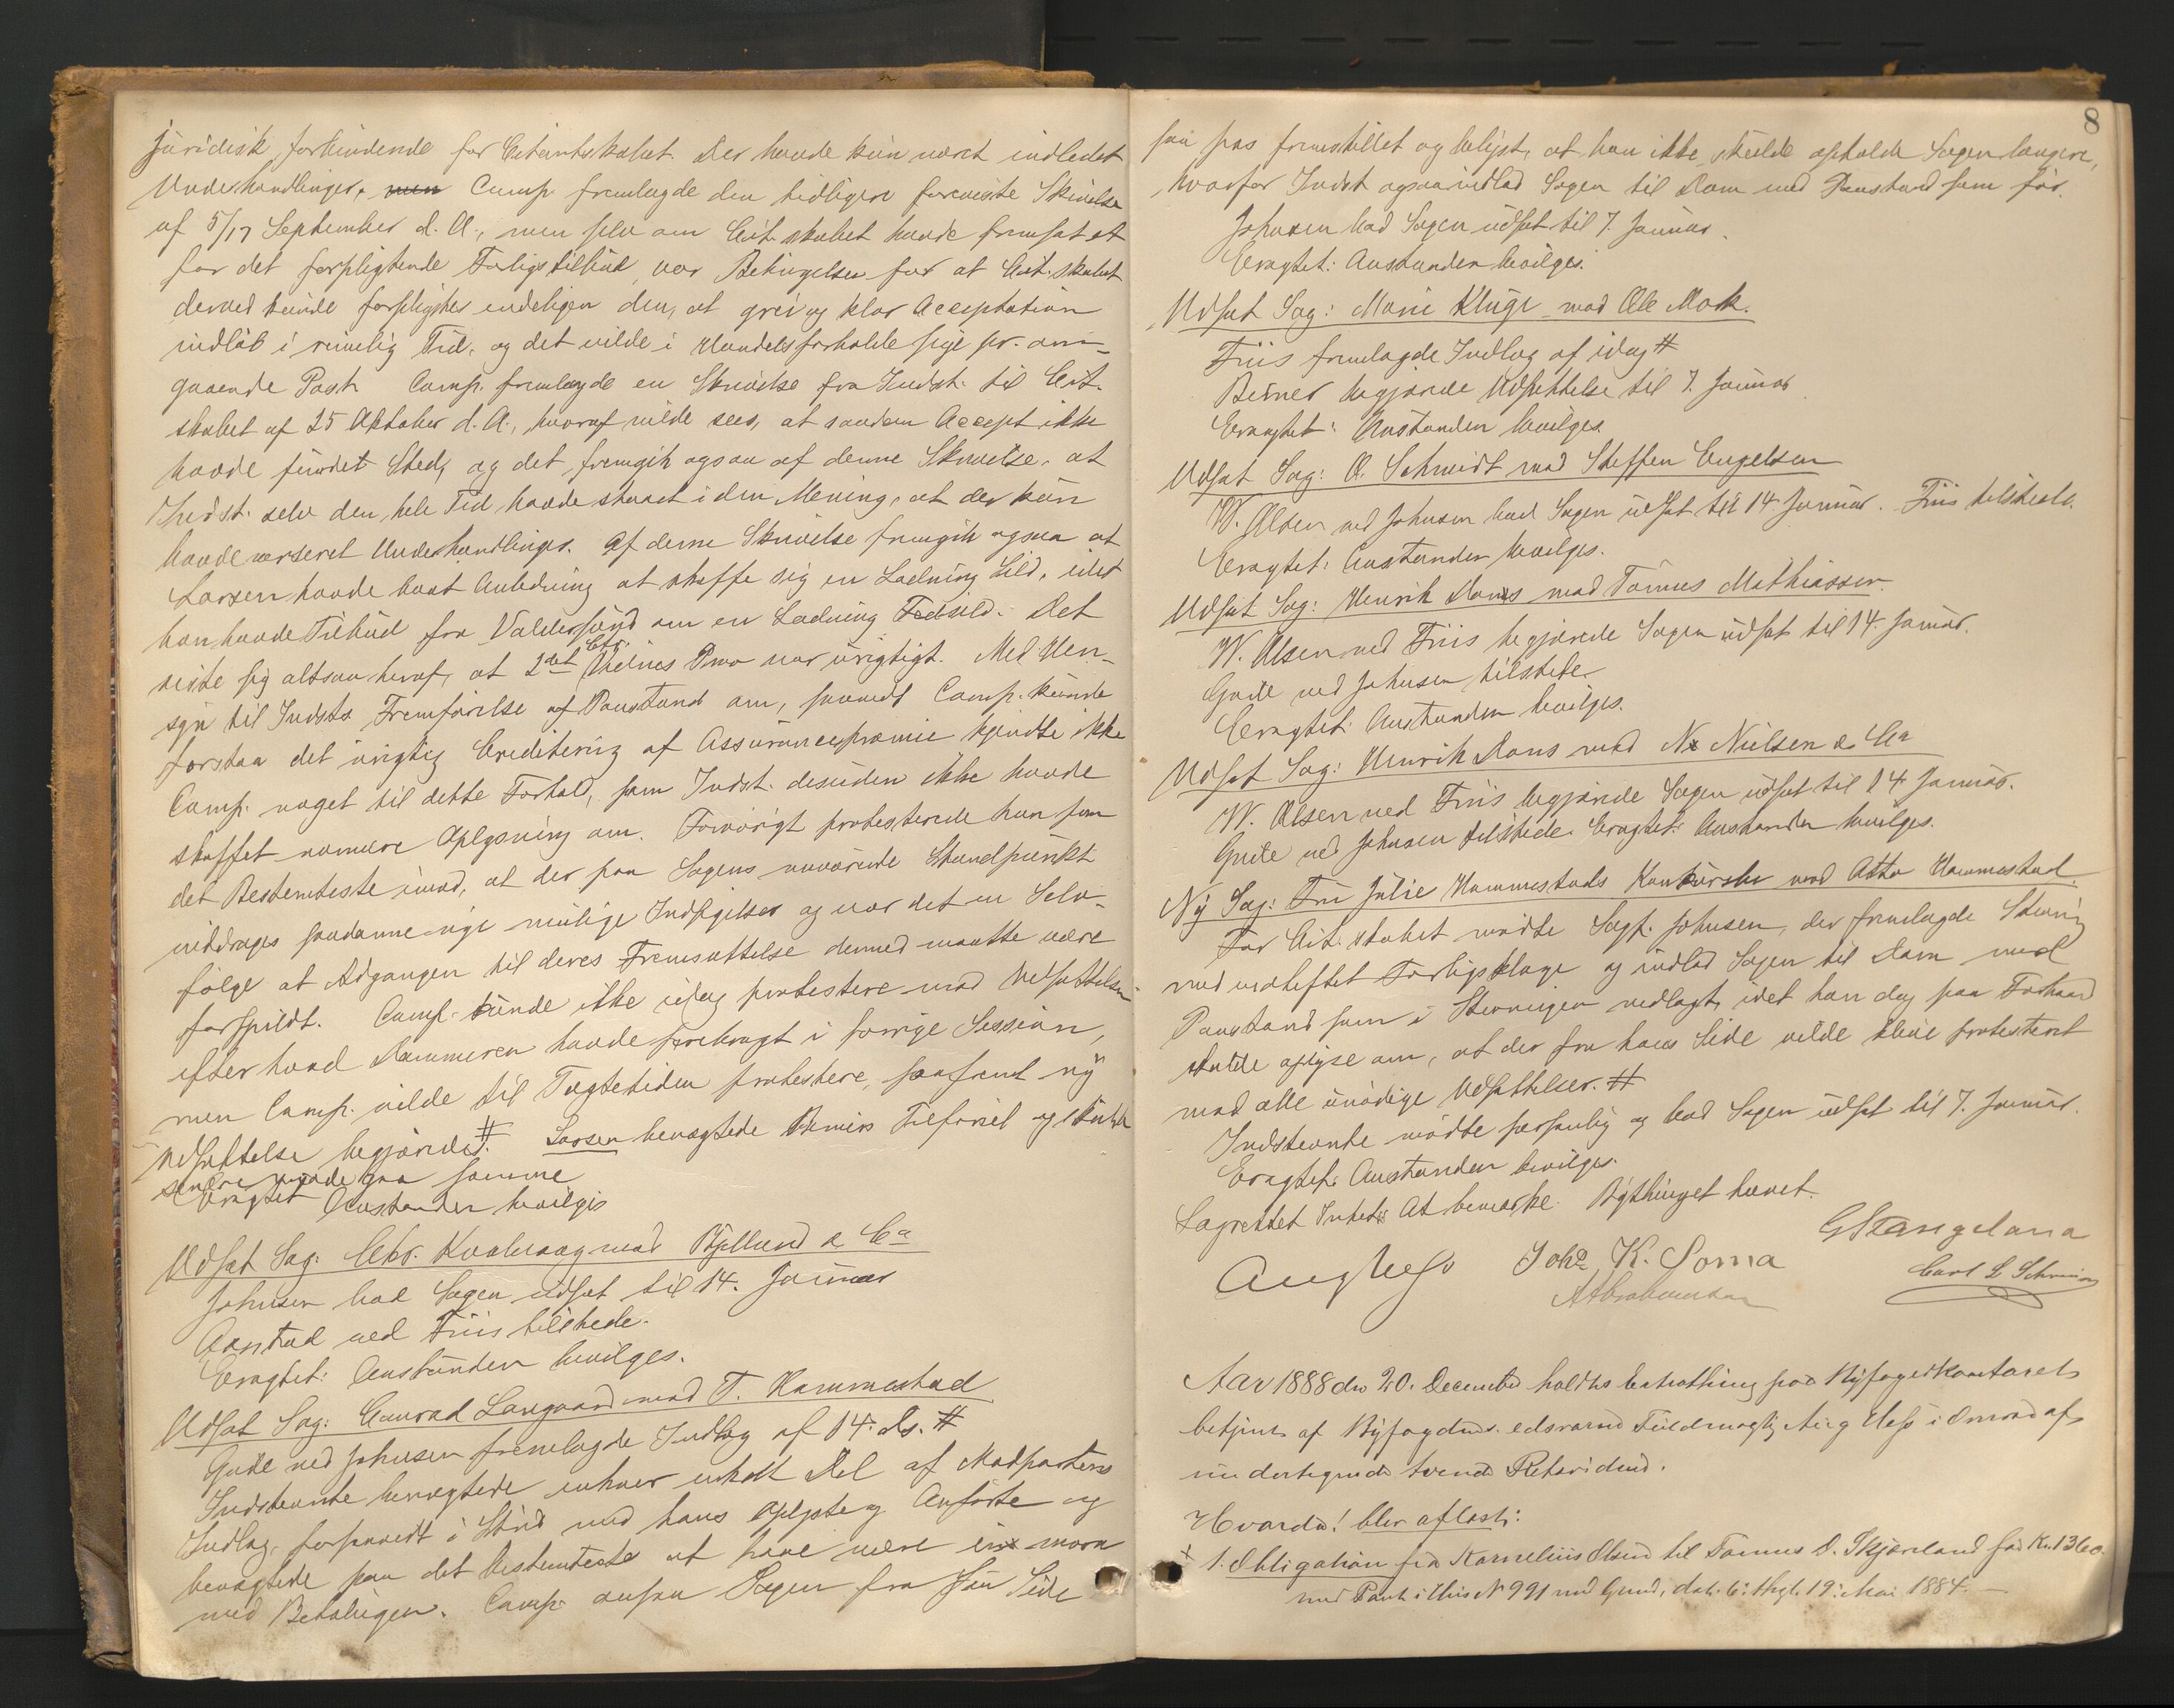 juridisk forbindende for Citantskabet. Der havde kun været indledet
Underhandlinger, men Comp. fremlagde den tidligere foreviste Skrivelse
af 5/17 September d. A., men selv om Cit.skabet havde fremsat et
for det forpligtende Forligstilbud var Betingelsen for at Cit.skabet
derved kunde forpligtes endeligen den, at grei og klar Acceptation
indløb i rimelig Tid, og det vilde i Handelsforholde sige pr. om-
gaaende Post. Comp. fremlagde en Skrivelse fra Indst. til Cit.
skabet af 25 Oktober d. A., hvoraf vilde sees, at saadan Accept ikke
havde fundet Sted, og det fremgik ogsaa af denne Skrivelse, at
Indst. selv den hele Tid havde staaet i den Mening, at der kun
havde verseret Underhandlinger. Af denne Skrivelse fremgik ogsaa at
Larsen havde havt Anledning at skaffe sig en Ladning Sild, idet
han havde Tilbud fra Valdersund om en Ladning Fedsild. Det
viste sig altsaa heraf, at 2det Ctr. Vidnes Prov var urigtigt. Med Hen-
syn til Indsts Fremførelse af Paastand om, saavidt Comp. kunde
forstaa det urigtig Creditering af Assurancepræmie kjendte ikke
Comp. noget til dette Forhold, som Indst. desuden ikke havde
skaffet nærmere Oplysning om. Forøvrigt protesterede han paa
det Bestemteste imod, at der paa Sagens nuværende Standpunkt
inddroges saadanne nye mulige Indsigelser og var det en Selv-
følge at Adgangen til deres Fremsættelse dermed maatte være
forspildt. Comp. kunde ikke idag protestere mod Udsættelsen
efter hvad Dommeren havde forebragt i forrige Session,
men Comp. vilde til Tægtetiden protestere, saafremt ny
Udsættelse begjæredes. # Larsen benægtede Reiners Tilførsel og skulde
senere svare paa samme
Eragtet Anstanden bevilges
Udsat Sag: Chr. Kvalevaag mod Kylland & Co
Johnsen bad Sagen udsat til 14. Januar
Aanstad ved Friis tilstede.
Eragtet: Anstanden bevilges.
Udsat Sag: Conrad Langaard mod T. Hammestad
Gude ved Johnsen fremlagde Indlæg af 14. ds. #
Indstevnte benægtede enhver enkelt Del af Modpartens
Indlæg, forsaavidt i Strid med hans Oplyste og Anførte og
benægtede paa det Bestemteste at have være in mora
med Betalingen. Comp. ansaa Sagen fra sin Side
8
saa pas fremstillet og belyst, at han ikke skulde opholde Sagen længere,
hvorfor Indst ogsaa indlod Sagen til Dom med Paastand som før.
Johnsen bad Sagen udsat til 7. Januar.
Eragtet: Anstanden bevilges.
Udsat Sag: Marie Kluge mod Ole Mok.
Friis fremlagde Indlæg af idag #
Reiner begjærede Udsættelse til 7. Januar
Eragtet: Anstanden bevilges.
Udsat Sag: A. Schmidt mod Steffen Engelsen
W. Olsen ved Johnsen bad Sagen udsat til 14. Januar. Friis tilstede.
Eragtet: Anstanden bevilges.
Udsat Sag: Henrik Dons mod Tønnes Mathiassen.
W. Olsen ved Friis begjærede Sagen udsat til 14. Januar.
Gude ved Johnsen tilstede.
Eragtet: Anstanden bevilges.
Udsat Sag: Henrik Dons mod N. Nielsen & Co
W. Olsen ved Friis begjærede Sagen udsat til 14 Januar.
Gude ved Johnsen tilstede. Eragtet: Anstanden bevilges.
Ny Sag: Fru Julie Hammestads Konkursbo mod Otto Hammestad
For Cit.skabet mødte Sagf. Johnsen, der fremlagde Stevning
med vedheftet Forligsklage og indlod Sagen til Dom med
Paastand som i Stevningen nedlagt, idet han dog paa Forhaand
skulde oplyse om, at der fra hans Side vilde blive protesteret
mod alle unødige Udsættelser. #
Indstevnte mødte personlig og bad Sagen udsat til 7. Januar.
Eragtet: Anstanden bevilges.
Lagrettet Intet At bemærke. Bythinget hævet.
Aug Hess Joh. K. Soma G Stangeland
A Abrahamsen Carl L Schiøng
Aar 1888 den 20. December holdtes Extrathing paa Byfogedkontoret
betjent af Byfogdens edsvorne Fuldmægtig Aug Hess i Overvær af
undertegnede tvende Retsvidner.
Hvorda! blev aflæst:
x 1. Obligation fra Kornelius Olsen til Tønnes O. Skjæveland for Kr. 1360.
med Pant i Hus No 991 med Grund, dat. 6. thgl. 19. Mai 1884. —